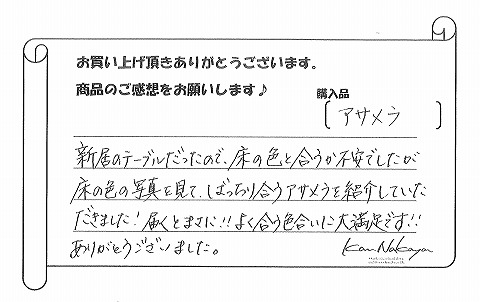 お買い上げ頂きありがとうございます。
商品のご感想をお願いします♪
購入品
[ アサメラ ]
新居のテーブルだったので、床の色と合うか不安でしたが
床の色の写真を見て、ばっちり合うアサメラを紹介していた
だきました!届くとまさに!!よく合う色合いに大満足です!!
ありがとうございました。